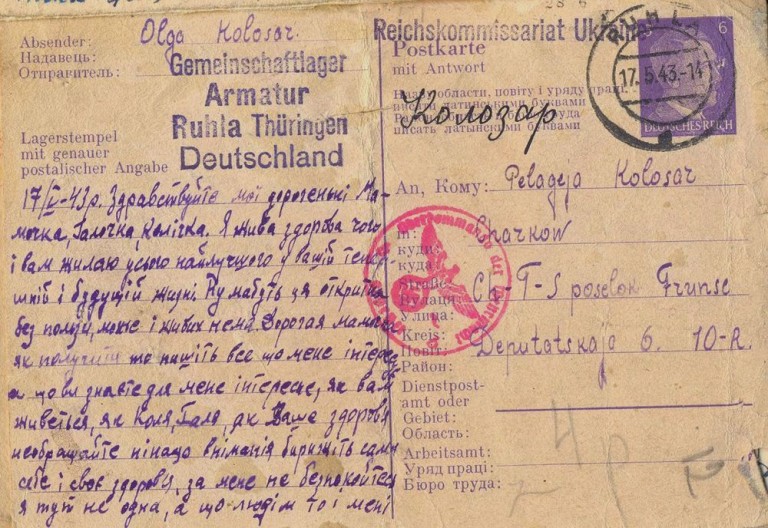 Absender: Olga Kolosar
Надавець:
Отправитель:
Gemeinschaftlager
Armatur
Ruhla Thüringen
Deutschland
Lagerstempel
mit genauer
postalischer Angabe
17/V-43р. Здравствуйте мої дорогенькі Ма-
мочка, Галочка, Колічка. Я жива здорова чого
і вам жилаю усього найлучшого у вашій тепер
ішній і будущій жизні. Ну мабуть ця открытка
без ползи, може і живих нема. Дорогая мамочка
як получити то пишіть все що мене інтерес
а що ви знаєте для мене інтересне, як вам
живеться, як Коля, Галя, як Ваше здоровя
необращайте нінащо вніманія бирижіть самі
себе і своє здоровя, за мене не безпокойтеся
я тут не одна, а що людям то і мені
Reichskommissariat Ukraine
Postkarte
mit Antwort
писати латинськими буквами
писать латынскими буквами
Колозар
RUHLA
17.5.43.-14
6
DEUTSCHES REICH
An, Кому: Pelageja Kolosar
in: Charkow
куди:
куда:
Straße: Ch-T-S poselok Frunse
Вулиця:
Улица:
Kreis: Deputatskaja 6. 10-R.
Повіт:
Район:
Dienstpost-
amt oder
Gebiet:
Область:
Arbeitsamt:
Уряд праці:
Бюро труда: